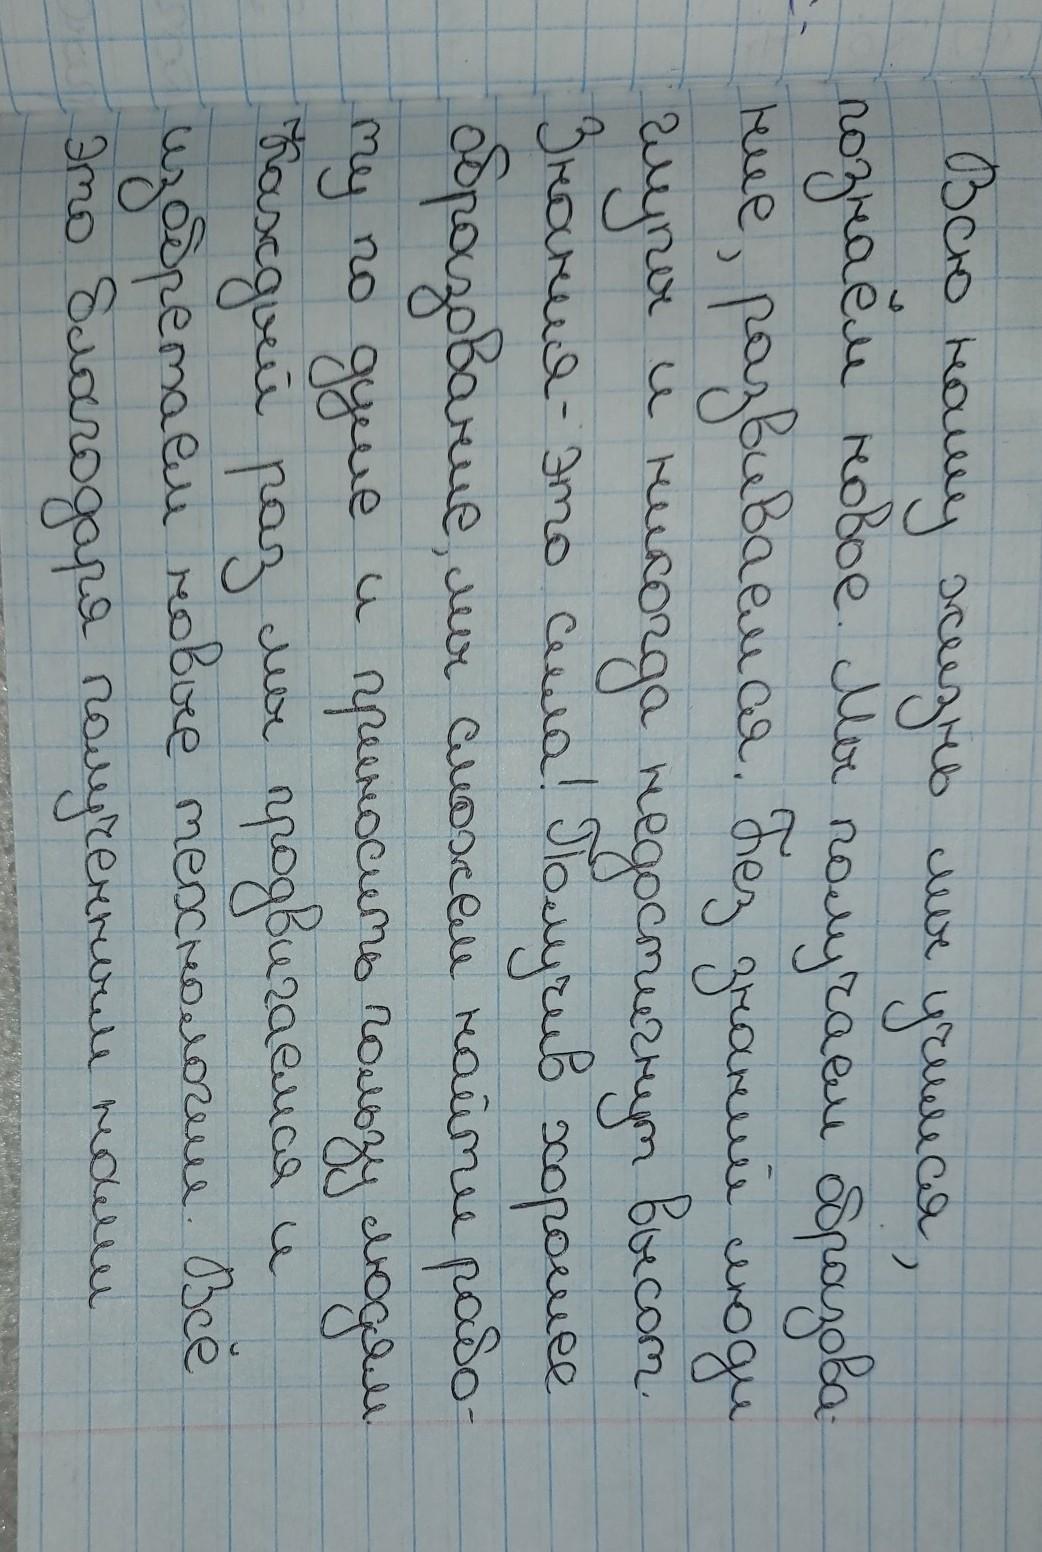 Всю нашу жизнь мы учимся,
познаём новое. Мы получаем образова-
ние, развиваемся. Без знаний люди
глупы и никогда недостигнут высот.
Знания - это сила! Получив хорошее
образование, мы сможем найти рабо-
ту по душе и приносить пользу людям.
Каждый раз мы продвигаемся и
изобретаем новые технологии. Всё
это благодаря полученным нами